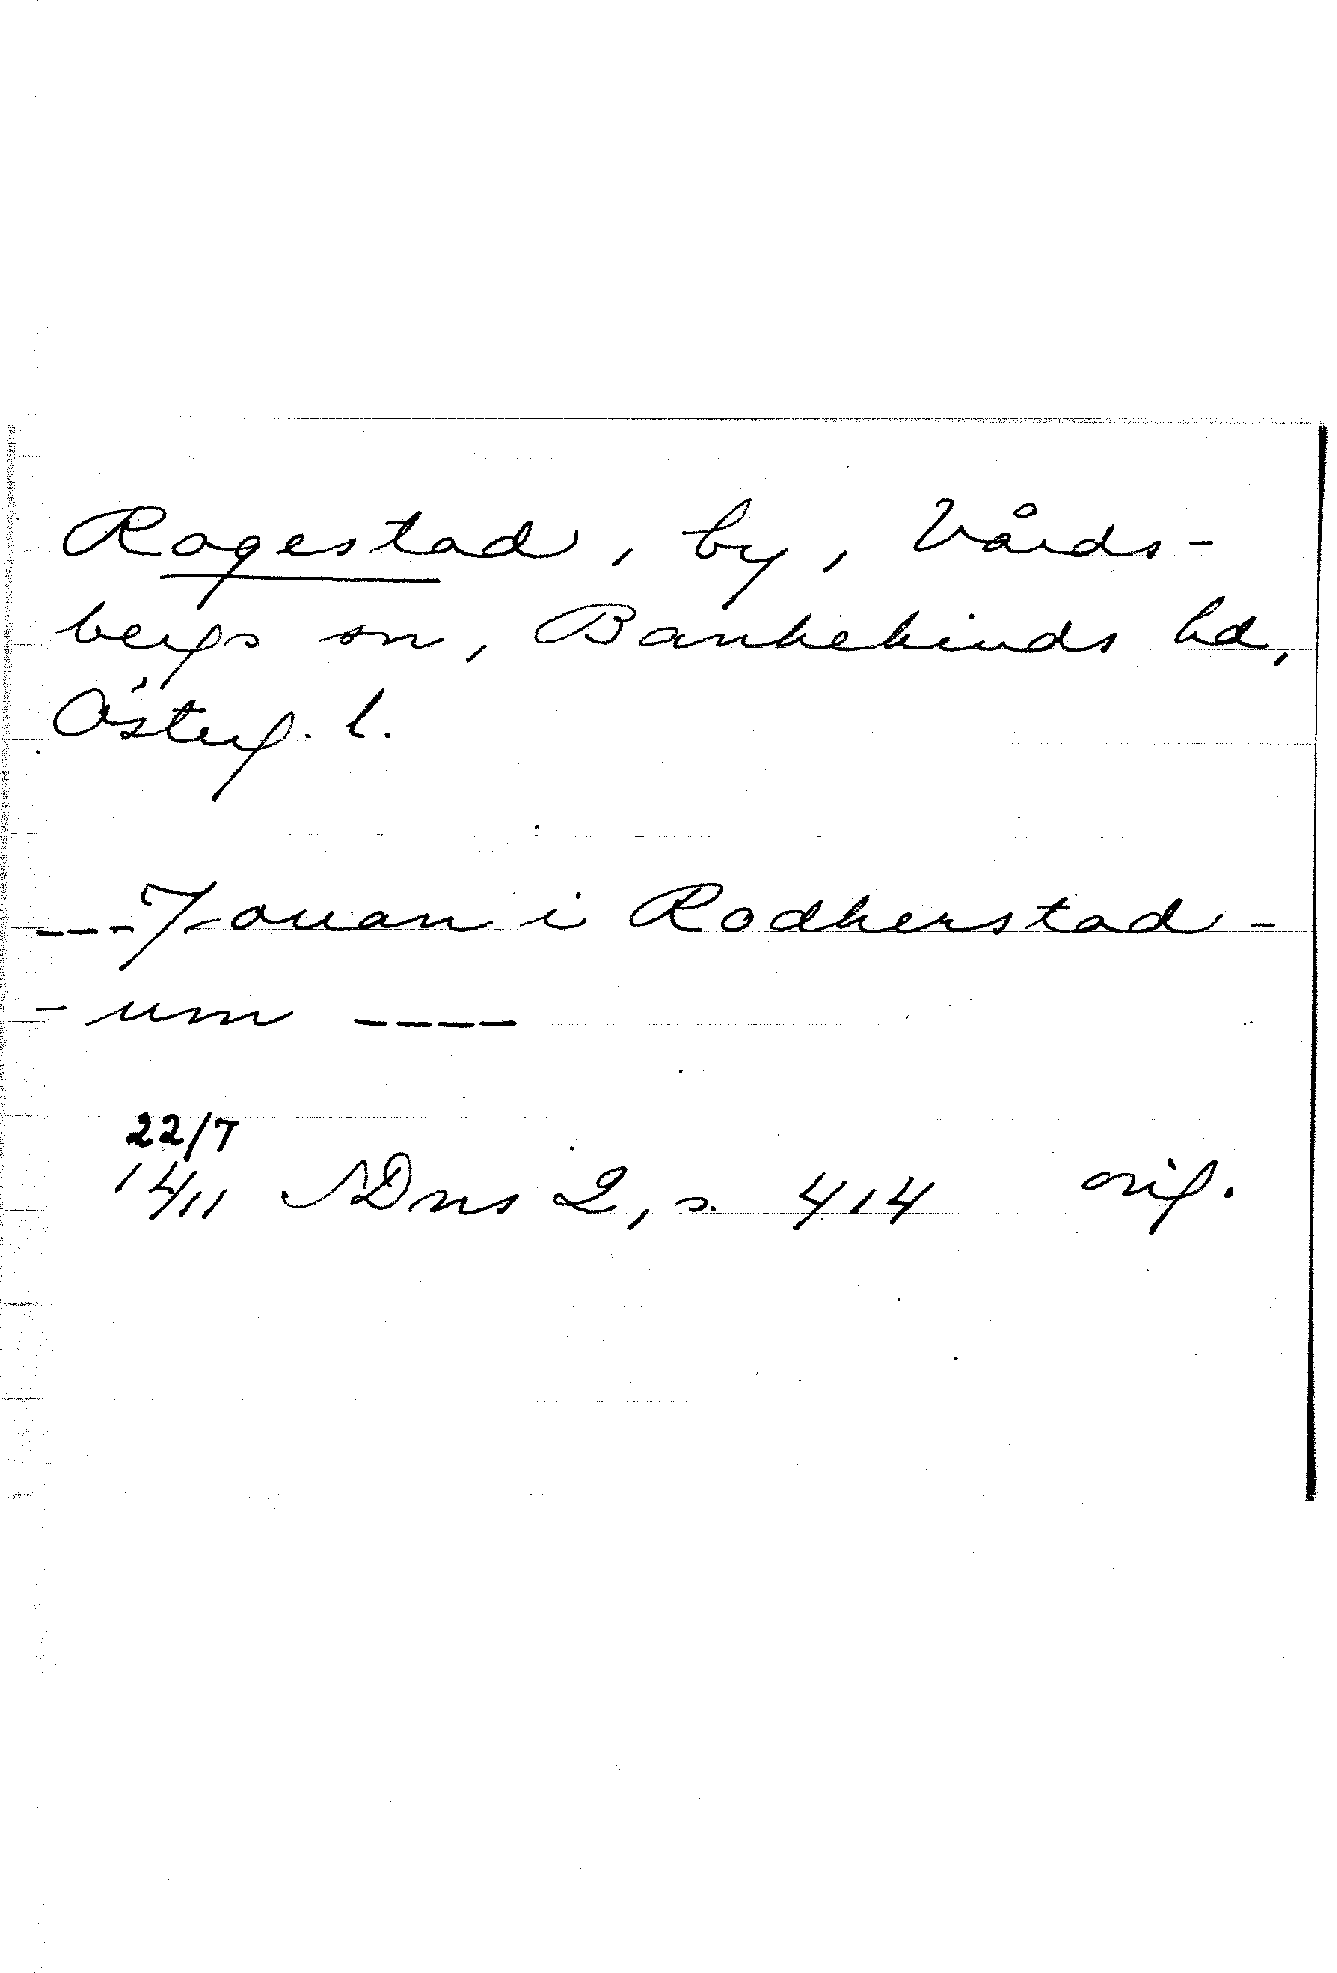 Rogestad, by, Vårds-
bergs sn, Bankekinds hd,
Österg. l.
---Jouan i Rodherstad-
-um ----
22/7
1411 SDns 2, s. 414 orig.